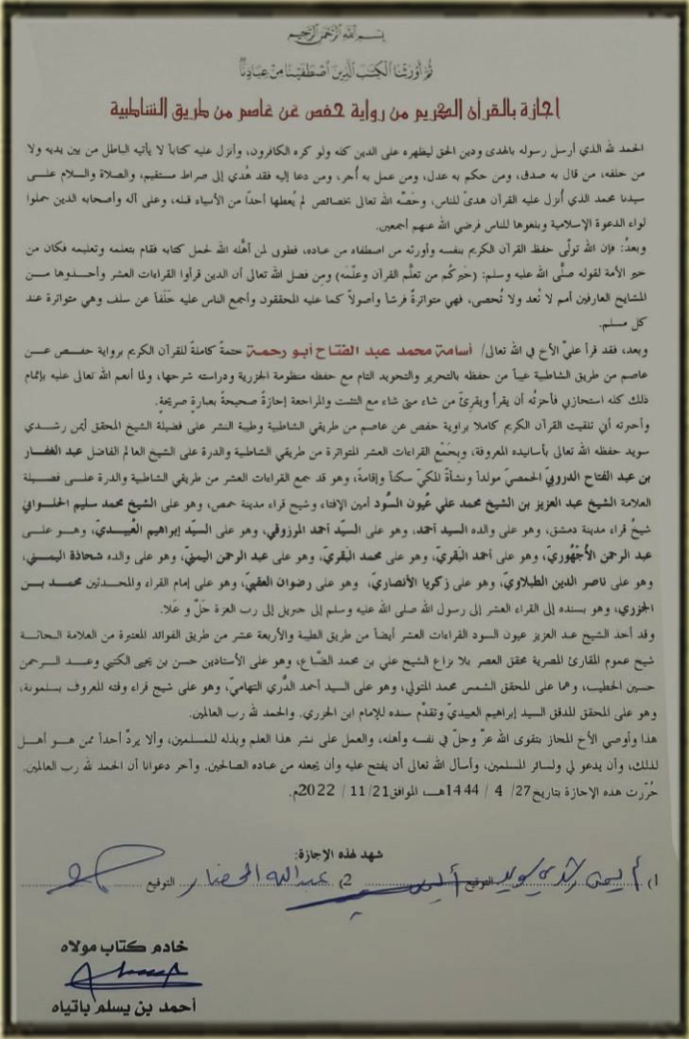 بسم الله الرحمن الرحيم
ثُمَّ أَوْرَثْنَا الْكِتَٰبَ الَّذِينَ اصْطَفَيْنَا مِنْ عِبَادِنَا
اجازة بالقرآن الكريم من رواية حفص عن عاصم من طريق الشاطبية
الحمد لله الذي أرسل رسوله بالهدى ودين الحق ليظهره على الدين كله ولو كره الكافرون، وأنزل عليه كتاباً لا يأتيه الباطل من بين يديه ولا
من خلفه، من قال به صدق، ومن حكم به عدل، ومن عمل به أُجر، ومن دعا إليه فقد هُدي إلى صراط مستقيم، والصلاة والسلام على
سيدنا محمد الذي أُنزل عليه القرآن هدىً للناس، وخصّه الله تعالى بخصائص لم يُعطها أحداً من الأنبياء قبله، وعلى آله وأصحابه الذين حملوا
لواء الدعوة الإسلامية وبلغوها للناس فرضي الله عنهم أجمعين.
وبعدُ: فإن الله تولّى حفظ القرآن الكريم بنفسه وأورثه من اصطفاه من عباده، فطوبى لمن أهّله الله لحمل كتابه فقام بتعلمه وتعليمه فكان من
خير الأمة لقوله صلّى الله عليه وسلم: (خيركُم من تعلَّم القرآن وعلّمَه) ومِن فضل الله تعالى أن الذين قرأوا القراءات العشر وأخذوها من
المشايخ العارفين أمم لا تُعد ولا تُحصى، فهي متواترةٌ فرشاً وأصولاً كما عليه المحققون وأجمع الناس عليه خَلَفاً عن سلف وهي متواترة عند
كل مسلم.
وبعد، فقد قرأ عليّ الأخ في الله تعالى/ أسامة محمد عبد الفتاح أبو رحمة ختمةً كاملةً للقرآن الكريم برواية حفص عن
عاصم من طريق الشاطبية غيباً من حفظه بالتحرير والتجويد التام مع حفظه منظومة الجزرية ودراسته شرحها، ولما أنعم الله تعالى عليه بإتمام
ذلك كله استجازني فأجزتُه أن يقرأ ويقرئَ من شاء متى شاء مع التثبت والمراجعة إجازةً صحيحةً بعبارةٍ صريحةٍ.
وأخبرته أني تلقيت القرآن الكريم كاملا براوية حفص عن عاصم من طريقي الشاطبية وطيبة النشر على فضيلة الشيخ المحقق أيمن رشدي
سويد حفظه الله تعالى بأسانيده المعروفة، وبجَمْعِ القراءات العشر المتواترة من طريقي الشاطبية والدرة على الشيخ العالم الفاضل عبد الغفار
بن عبد الفتاح الدروبيّ الحمصيّ مولداً ونشأةً المكيّ سكناً وإقامةً، وهو قد جمع القراءات العشر من طريقي الشاطبية والدرة على فضيلة
العلامة الشيخ عبد العزيز بن الشيخ محمد علي عُيون السُّود أمين الإفتاء وشيخ قراء مدينة حمص، وهو على الشيخ محمد سليم الحلواني
شيخُ قراء مدينة دمشق، وهو على والده السيد أحمد، وهو على السيّد أحمد المرزوقي، وهو على السيّد إبراهيم العُبيديّ، وهو على
عبد الرحمن الأُجْهُوريّ، وهو على أحمد البَقَريّ، وهو على محمد البَقريّ، وهو على عبد الرحمن اليمنيّ، وهو على والده شحاذة اليمني،
وهو على ناصر الدين الطبلاويّ، وهو على زكريا الأنصاريّ وهو على رضوان العقبيّ، وهو على إمام القراء والمحدثين محمد بن
الجزري، وهو بسنده إلى القراء العشر إلى رسول الله صلى الله عليه وسلم إلى جبريل إلى رب العزة جَلَّ وَ عَلا.
وقد أخذ الشيخ عبد العزيز عيون السود القراءات العشر أيضاً من طريق الطيبة والأربعة عشر من طريق الفوائد المعتبرة من العلامة البحاثة
شيخ عموم المقارئ المصرية محقق العصر بلا نزاع الشيخ علي بن محمد الضّباع، وهو على الأستاذين حسن بن يحيى الكتبي وعبد الرحمن
حسين الخطيب، وهما على المحقق الشمس محمد المتولي، وهو على السيد أحمد الدُّري التهاميّ، وهو على شيخ قراء وقته المعروف بسلمونة،
وهو على المحقق المدقق السيد إبراهيم العبيديّ وتقدّم سنده للإمام ابن الجزري. والحمد لله رب العالمين.
هذا وأوصي الأخ المجاز بتقوى الله عزّ وجلّ في نفسه وأهله، والعمل على نشر هذا العلم وبذله للمسلمين، وألا يردّ أحداً ممن هو أهل
لذلك، وأن يدعو لي ولسائر المسلمين، وأسأل الله تعالى أن يفتح عليه وأن يجعله من عباده الصالحين. وآخر دعوانا أن الحمد لله رب العالمين.
حُرّرت هذه الإجازة بتاريخ 27/ 4 / 1444هـ، الموافق 21/ 11 / 2022م.
شهد لهذه الإجازة:
1) أيمن رشدي سويد التوقيع 2) عبدالله التوقيع
خادم كتاب مولاه
أحمد بن يسلم باتياه